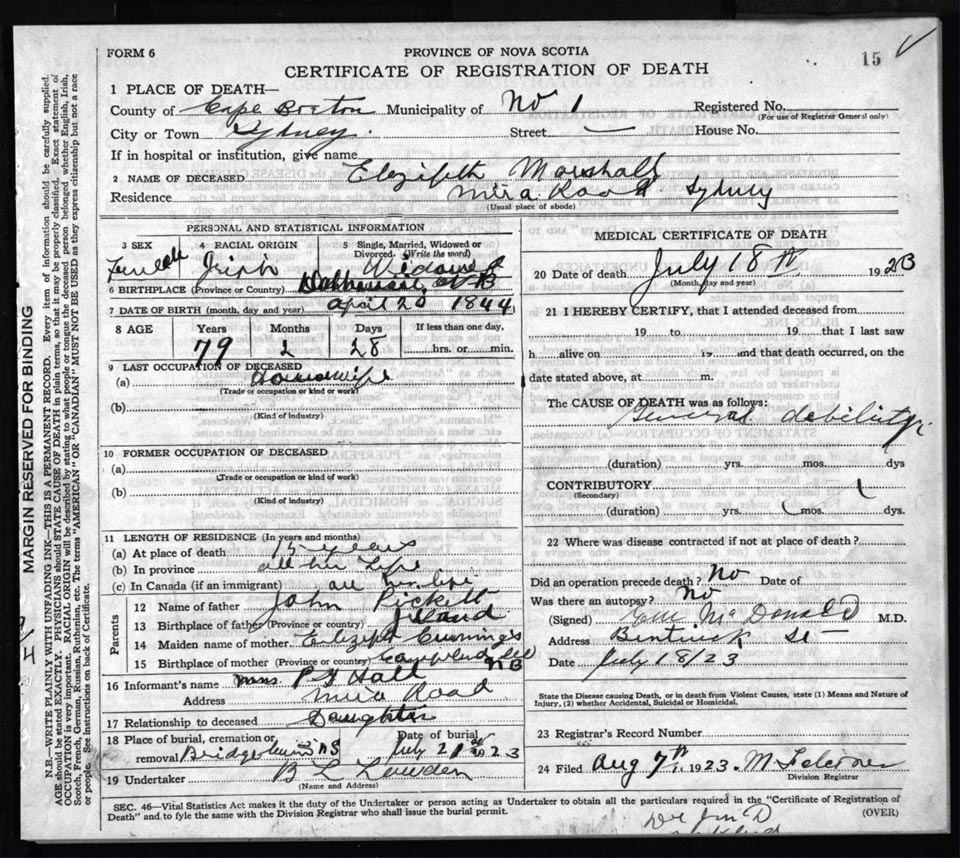 FORM 6
PROVINCE OF NOVA SCOTIA
15
CERTIFICATE OF REGISTRATION OF DEATH
1 PLACE OF DEATH—
County of Cape Breton Municipality of No 1 Registered No.
(For use of Registrar General only)
City or Town Sydney. Street — House No.
If in hospital or institution, give name
2 NAME OF DECEASED Elizabeth Marshall
Residence Mira Road Sydney
(Usual place of abode)
PERSONAL AND STATISTICAL INFORMATION
3 SEX 4 RACIAL ORIGIN 5 Single, Married, Widowed or Divorced (Write the word)
Female Irish Widowed
6 BIRTHPLACE (Province or Country) NB
7 DATE OF BIRTH (month, day and year) April 20 1844
8 AGE Years Months Days If less than one day,
79 2 28 hrs. or min.
9 LAST OCCUPATION OF DECEASED
(a) Housewife
(Trade or occupation or kind or work)
(b)
(Kind of industry)
10 FORMER OCCUPATION OF DECEASED
(a)
(Trade or occupation or kind of work)
(b)
(Kind of industry)
11 LENGTH OF RESIDENCE (In years and months)
(a) At place of death 15 years
(b) In province all her life
(c) In Canada (if an immigrant) all her life
Parents
12 Name of father John Pickett
13 Birthplace of father (Province or country) Ireland
14 Maiden name of mother Cummings
15 Birthplace of mother (Province or country) NB
16 Informant's name Mrs. P Hall
Address Mira Road
17 Relationship to deceased Daughter
18 Place of burial, cremation or removal Bridgetown NS Date of burial July 21st 1923
19 Undertaker B L
(Name and Address)
MEDICAL CERTIFICATE OF DEATH
20 Date of death July 18th 1923
(Month, day and year)
21 I HEREBY CERTIFY, that I attended deceased from
19 to 19 that I last saw
h alive on 19 and that death occurred, on the
date stated above, at m.
The CAUSE OF DEATH was as follows:
General debility
(duration) yrs. mos. dys
CONTRIBUTORY
(Secondary)
(duration) yrs. mos. dys.
22 Where was disease contracted if not at place of death?
Did an operation precede death? No Date of
Was there an autopsy? No
(Signed) McDonald M.D.
Address Bentinck St —
Date July 18/23
State the Disease causing Death, or in death from Violent Causes, state (1) Means and Nature of
Injury, (2) whether Accidental, Suicidal or Homicidal.
23 Registrar's Record Number
24 Filed Aug 7th 1923. M
Division Registrar
SEC. 46—Vital Statistics Act makes it the duty of the Undertaker or person acting as Undertaker to obtain all the particulars required in the "Certificate of Registration of
Death" and to fyle the same with the Division Registrar who shall issue the burial permit.
(OVER)
MARGIN RESERVED FOR BINDING
N.B.—WRITE PLAINLY WITH UNFADING INK—THIS IS A PERMANENT RECORD. Every item of information should be carefully supplied.
AGE should be stated EXACTLY. PHYSICIANS should STATE CAUSE OF DEATH in plain terms, so that it may be properly classified. Exact statement of
OCCUPATION is very important. RACIAL ORIGIN will be described by stating to what people or tongue the deceased person belonged whether English, Irish,
Scotch, French, German, Russian, Ruthenian, etc. The terms "AMERICAN" OR "CANADIAN" MUST NOT BE USED as they express citizenship but not a race
or people. See instructions on back of Certificate.